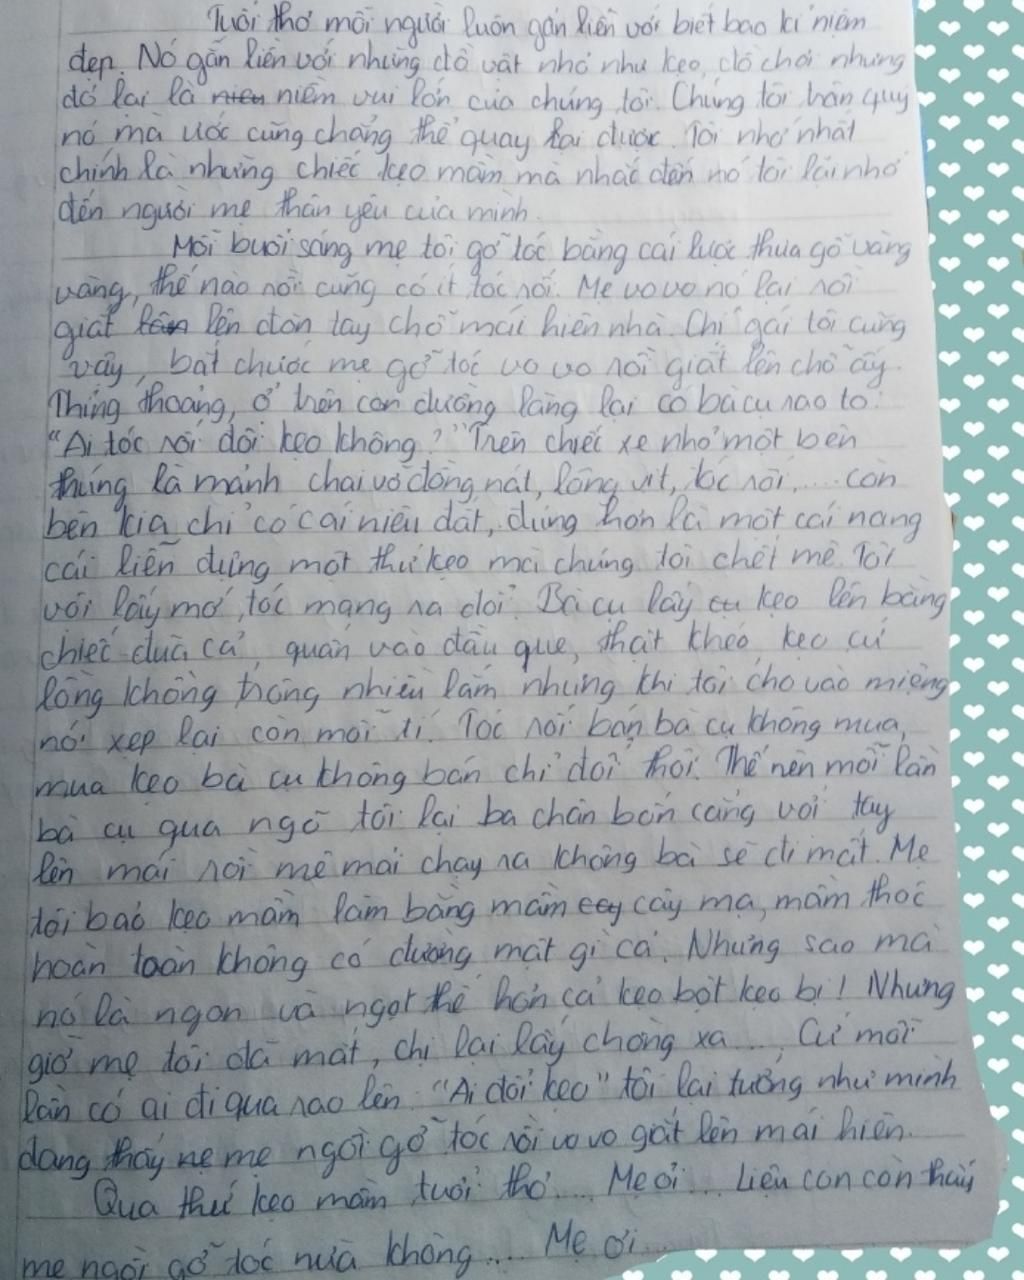 Tuổi thơ mỗi người luôn gắn liền với biết bao kỉ niệm
đẹp. Nó gắn liền với những đồ vật nhỏ như kẹo, đồ chơi nhưng
đó lại là niềm vui lớn của chúng tôi. Chúng tôi trân quý
nó mà ước cũng chẳng thể quay lại được. Tôi nhớ nhất
chính là những chiếc kẹo mầm mà nhắc đến nó tôi lại nhớ
đến người mẹ thân yêu của mình.
Mỗi buổi sáng mẹ tôi gỡ tóc bằng cái lược thưa gỗ vàng
vàng, thế nào rồi cũng có ít tóc rối. Mẹ vo vo nó lại rồi
giắt lên đòn tay chỗ mái hiên nhà. Chị gái tôi cũng
vậy, bắt chước mẹ gỡ tóc vo vo rồi giắt lên chỗ ấy.
Thỉng thoảng, ở trên con đường làng lại có bà cụ rao to:
"Ai tóc rối đổi kẹo không?" Trên chiếc xe nhỏ một bên
thúng là mảnh chai vỡ đồng nát, lông vịt, tóc rối,.... còn
bên kia chỉ có cái niêu đất, đúng hơn là một cái nang
cái liễn đựng một thứ kẹo mà chúng tôi chết mê. Tôi
với lấy mớ tóc mang ra đổi. Bà cụ lấy kẹo lên bằng
chiếc đũa cả, quấn vào đầu que, thật khéo, kẹo cứ
lồng khồng trông nhiều lắm nhưng khi tôi cho vào miệng
nó xẹp lại còn mỗi tí. Tóc rối bán bà cụ không mua,
mua kẹo bà cụ không bán chỉ đổi thôi. Thế nên mỗi lần
bà cụ qua ngõ tôi lại ba chân bốn cẳng với tay
lên mái rồi mê mải chạy ra không bà sẽ đi mất. Mẹ
tôi bảo kẹo mầm làm bằng mầm cây mạ, mầm thóc
hoàn toàn không có đường mật gì cả. Nhưng sao mà
nó là ngon và ngọt thế hơn cả kẹo bột kẹo bi! Nhưng
giờ mẹ tôi đã mất, chị lại lấy chồng xa.... Cứ mỗi
lần có ai đi qua rao lên "Ai đổi kẹo" tôi lại tưởng như mình
đang thấy mẹ ngồi gỡ tóc rồi vo vo giắt lên mái hiên.
Qua thứ kẹo mầm tuổi thơ.... Mẹ ơi... Liệu con còn thấy
mẹ ngồi gỡ tóc nữa không.... Mẹ ơi...